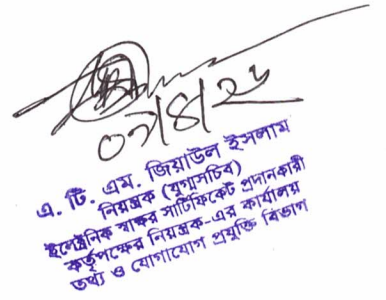 ০৭/৪/২৬
এ. টি. এম. জিয়াউল ইসলাম
নিয়ন্ত্রক (যুগ্মসচিব)
ইলেক্ট্রনিক স্বাক্ষর সার্টিফিকেট প্রদানকারী
কর্তৃপক্ষের নিয়ন্ত্রক-এর কার্যালয়
তথ্য ও যোগাযোগ প্রযুক্তি বিভাগ